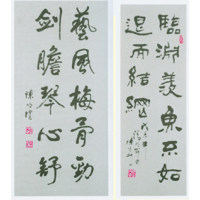 臨淵羨魚不如
退而結網
藝風梅骨勁
劍膽琴心舒